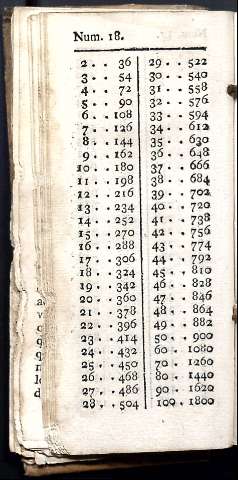 Num. 18.
2 . . 36
3 . . 54
4 . . 72
5 . . 90
6 . . 108
7 . . 126
8 . . 144
9 . . 162
10 . . 180
11 . . 198
12 . . 216
13 . . 234
14 . . 252
15 . . 270
16 . . 288
17 . . 306
18 . . 324
19 . . 342
20 . . 360
21 . . 378
22 . . 396
23 . . 414
24 . . 432
25 . . 450
26 . . 468
27 . . 486
28 . . 504
29 . . 522
30 . . 540
31 . . 558
32 . . 576
33 . . 594
34 . . 612
35 . . 630
36 . . 648
37 . . 666
38 . . 684
39 . . 702
40 . . 720
41 . . 738
42 . . 756
43 . . 774
44 . . 792
45 . . 810
46 . . 828
47 . . 846
48 . . 864
49 . . 882
50 . . 900
60 . . 1080
70 . . 1260
80 . . 1440
90 . . 1620
100 . . 1800